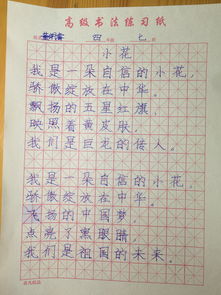 高级书法练习纸
四 七
小花
我是一朵自信的小花，
骄傲绽放在中华。
飘扬的五星红旗，
映照着黄皮肤，
我们是巨龙的传人。
我是一朵自信的小花，
骄傲绽放在中华。
飞扬的中国梦，
点亮了黑眼睛，
我们是祖国的未来。